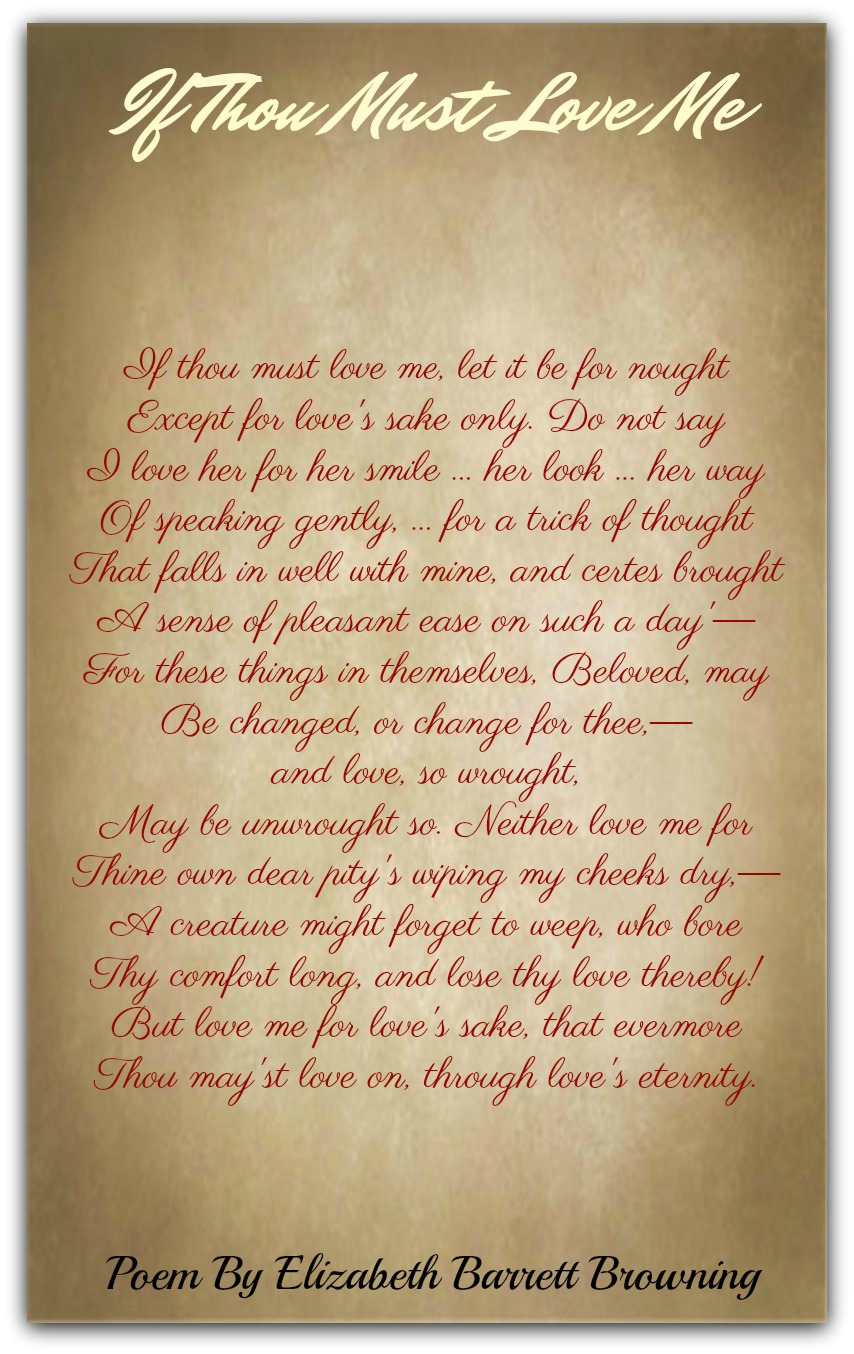 If Thou Must Love Me
If thou must love me, let it be for nought
Except for love's sake only. Do not say
I love her for her smile ... her look ... her way
Of speaking gently, ... for a trick of thought
That falls in well with mine, and certes brought
A sense of pleasant ease on such a day'—
For these things in themselves, Beloved, may
Be changed, or change for thee,—
and love, so wrought,
May be unwrought so. Neither love me for
Thine own dear pity's wiping my cheeks dry,—
A creature might forget to weep, who bore
Thy comfort long, and lose thy love thereby!
But love me for love's sake, that evermore
Thou may'st love on, through love's eternity.
Poem By Elizabeth Barrett Browning